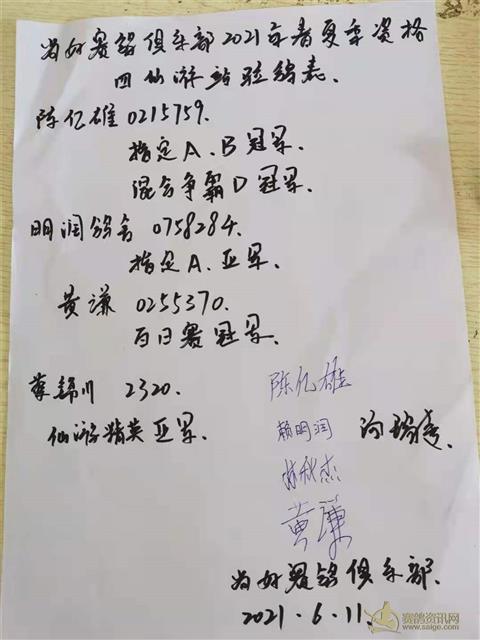 为好赛鸽俱乐部2021年春夏季资格
四仙游站验鸽表.
陈亿雄 0215759.
指定A.B冠军.
混合争霸D冠军.
明润鸽舍 0758284.
指定A.亚军.
黄谦 0255370.
百日赛冠军.
2320.
仙游精英亚军.
陈亿雄
赖明润
林秋杰
黄谦
为好赛鸽俱乐部.
2021.6.11.
赛鸽资讯网
www.saige.com